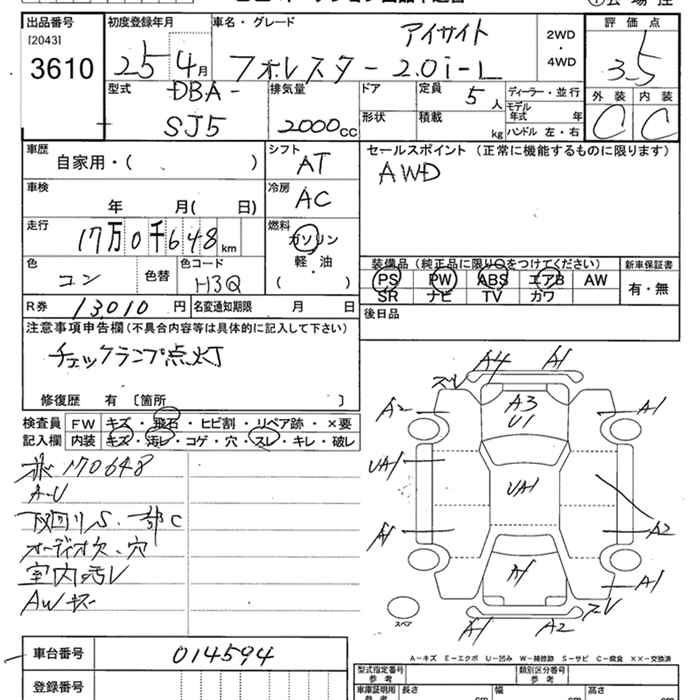 出品番号 初度登録年月 車名・グレード 評価点
[2043]
3610
25年4月 アイサイト
フォレスター 2.0i-L
2WD
・
4WD
3.5
型式 DBA-
SJ5
排気量
2000cc
ドア 定員 5人 ディーラー・並行
モデル年式 年
形状 積載 kg ハンドル 左・右
外装 内装
C C
車歴 自家用・( )
シフト AT
セールスポイント (正常に機能するものに限ります)
AWD
車検 年 月( 日)
冷房 AC
走行 17万0千648km
燃料 ガソリン
軽・油
( )
色 コン 色替 色コード H3Q
装備品(純正品に限り○をつけてください) 新車保証書
PS PW ABS エアB AW 有・無
SR ナビ TV カワ
R券 13,010円 名変通知期限 月 日
後日品
注意事項申告欄(不具合内容等は具体的に記入して下さい)
チェックランプ点灯
修復歴 有 〔箇所 〕
検査員 FW キズ・飛石・ヒビ割・リペア跡・×要
記入欄 内装 キズ・汚レ・コゲ・穴・スレ・キレ・破レ
170648
A-U
下回りS、一部C
オーディオ欠、穴
室内汚レ
AWキズ
A4 A1
スレ
A2 A3 A1
U1
UA1 UA1
A1 A2
A1 A1
スレ
A1 A2
スペア
A-キズ E-エクボ U-凹み W-補修跡 S-サビ C-腐食 ××-交換済
車台番号 014594
型式指定番号 参考 類別区分番号 参考
登録番号
車庫証明用 参考 長さ cm 幅 cm 高さ cm